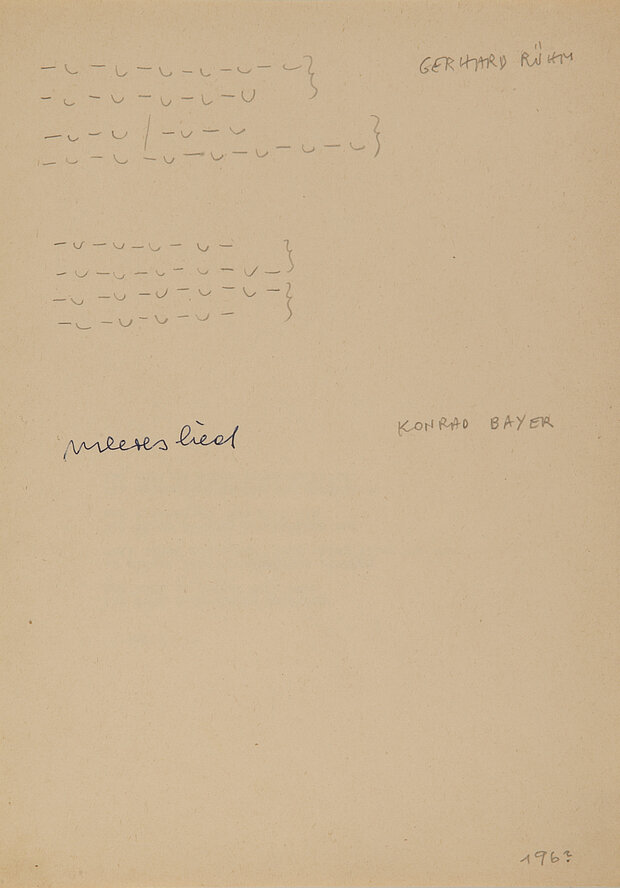 GERHARD RÜHM
KONRAD BAYER
meereslied
196?